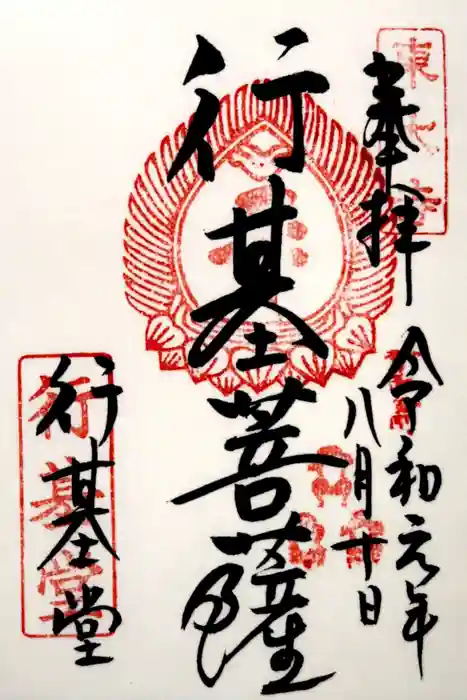 奉拝
令和元年
八月十日
行基菩薩
行基堂
東大寺
行基堂